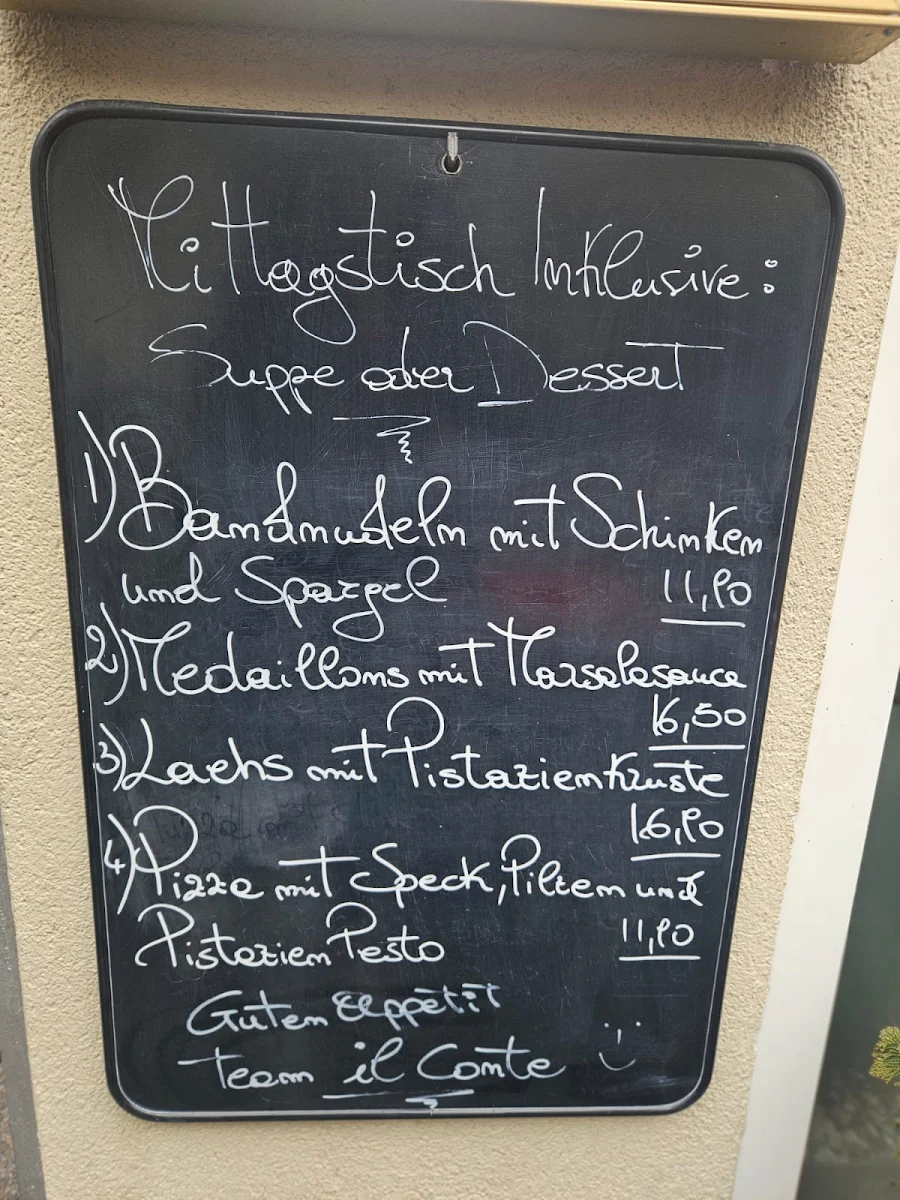 Mittagstisch Inklusive:
Suppe oder Dessert
1) Bandnudeln mit Schinken
und Spargel 11,90
2) Medaillons mit Marsalasauce
16,50
3) Lachs mit Pistazienkruste
16,90
4) Pizza mit Speck, Pilzen und
Pistazien Pesto 11,90
Guten Appetit
Team il Conte